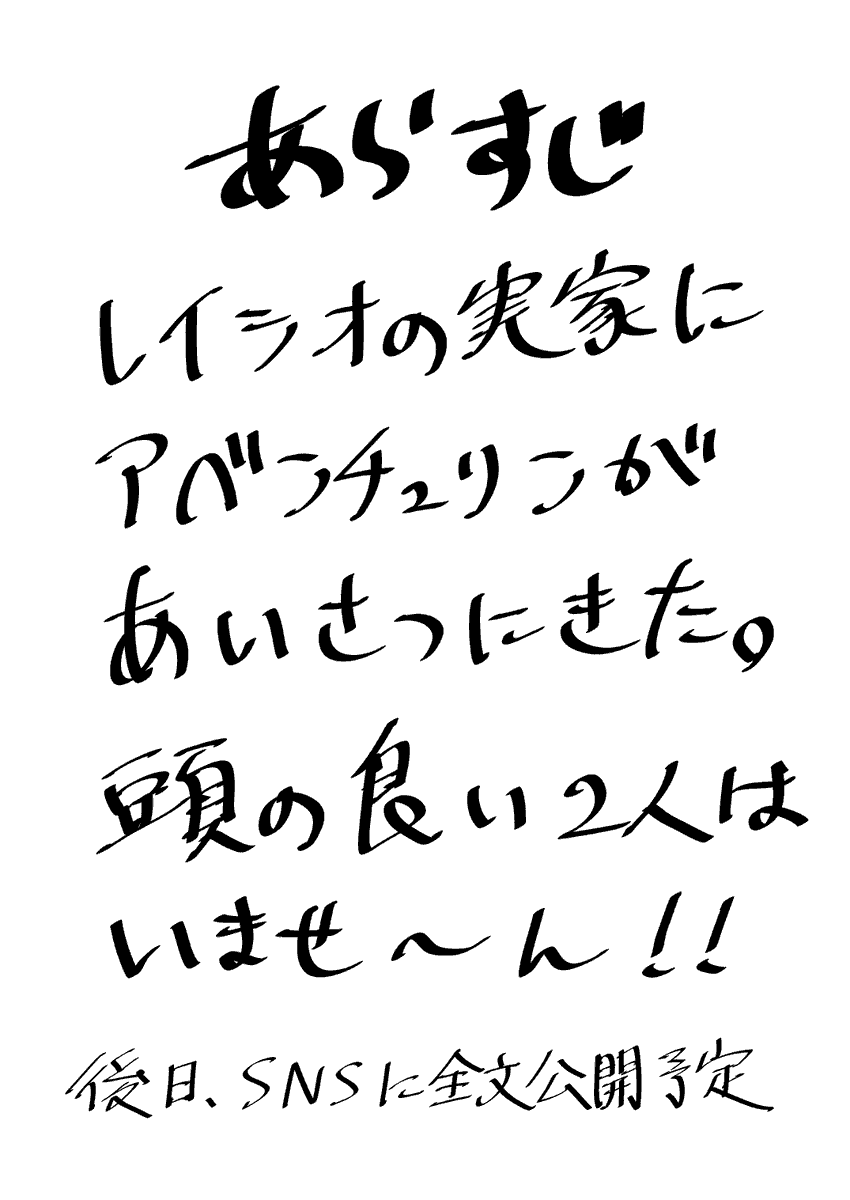 あらすじ
レイシオの実家に
アベンチュリンが
あいさつにきた。
頭の良い2人は
いませ〜ん!!
後日、SNSに全文公開予定